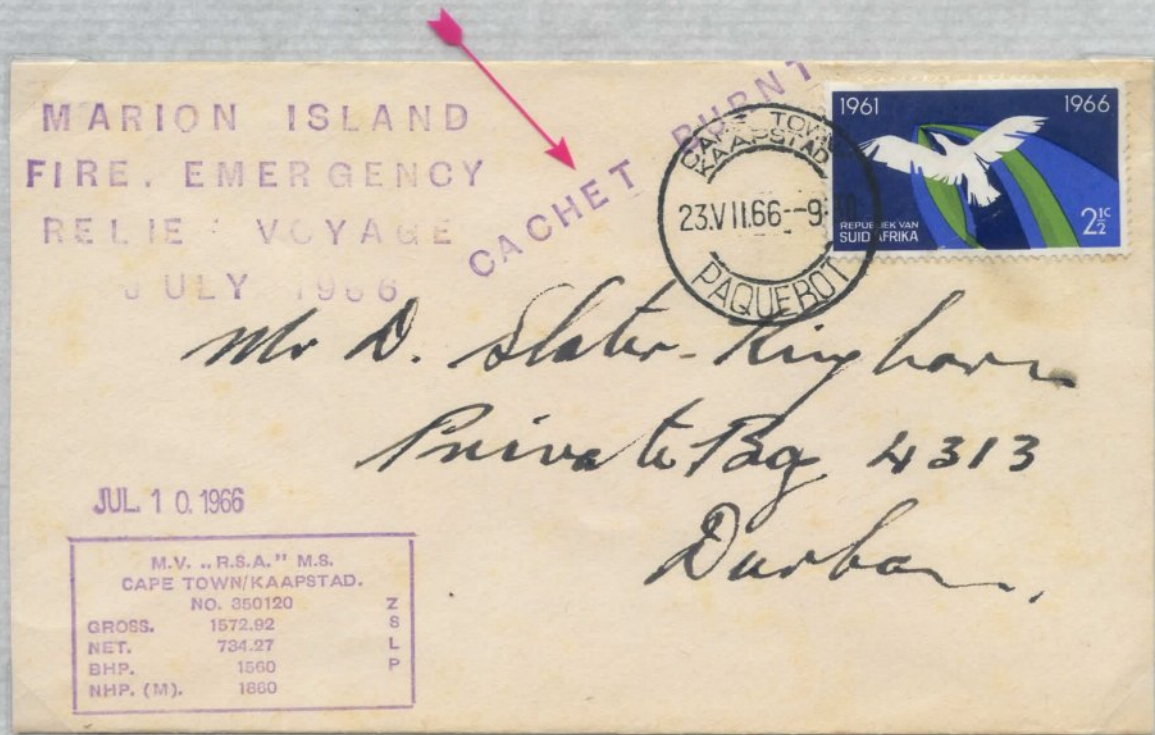 MARION ISLAND
FIRE. EMERGENCY
RELIEF VOYAGE
JULY 1966
CACHET BURNT
CAPE TOWN
KAAPSTAD
23.VII.66--9
PAQUEBOT
1961 1966
REPUBLIEK VAN
SUID AFRIKA
2½c
Mr D. Slater-Kinghorn
Private Bag 4313
Durban.
JUL 10.1966
M.V. „R.S.A." M.S.
CAPE TOWN/KAAPSTAD.
NO. 350120 Z
GROSS. 1572.92 S
NET. 734.27 L
BHP. 1560 P
NHP. (M). 1860